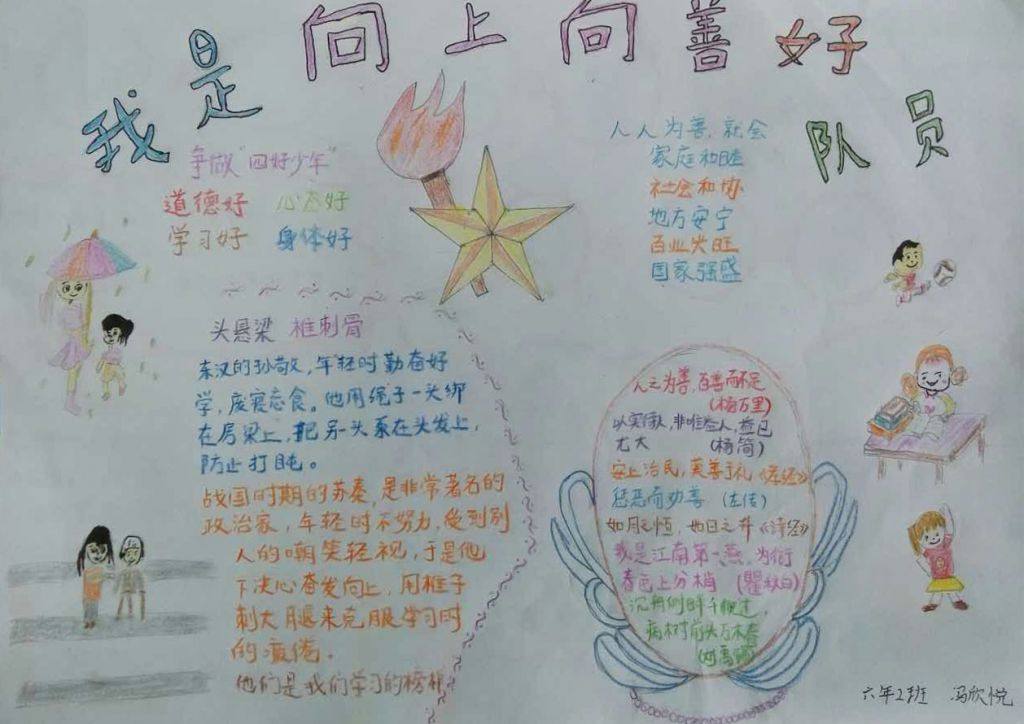 我是向上向善好队员
争做"四好少年"
道德好 心态好
学习好 身体好
人人为善,社会
家庭和睦
社会和协
地方安宁
百业兴旺
国家强盛
头悬梁 椎刺骨
东汉的孙敬,年轻时勤奋好
学,废寝忘食。他用绳子一头绑
在房梁上,把另一头系在头发上,
防止打盹。
战国时期的苏秦,是非常著名的
政治家,年轻时不努力,受到别
人的嘲笑轻视,于是他
下决心奋发向上,用椎子
刺大腿来克服学习时
的疲倦。
他们是我们学习的榜样
人之为善,百善而不足
(杨万里)
以实待人,非唯益人,益己
尤大 (杨简)
安上治民,莫善于礼《孝经》
惩恶而劝善 (左传)
如月之恒,如日之升《诗经》
我是江南第一燕,为衔
春色上云梢 (瞿秋白)
沉舟侧畔千帆过,
病树前头万木春
(刘禹锡)
六年2班 冯欣悦